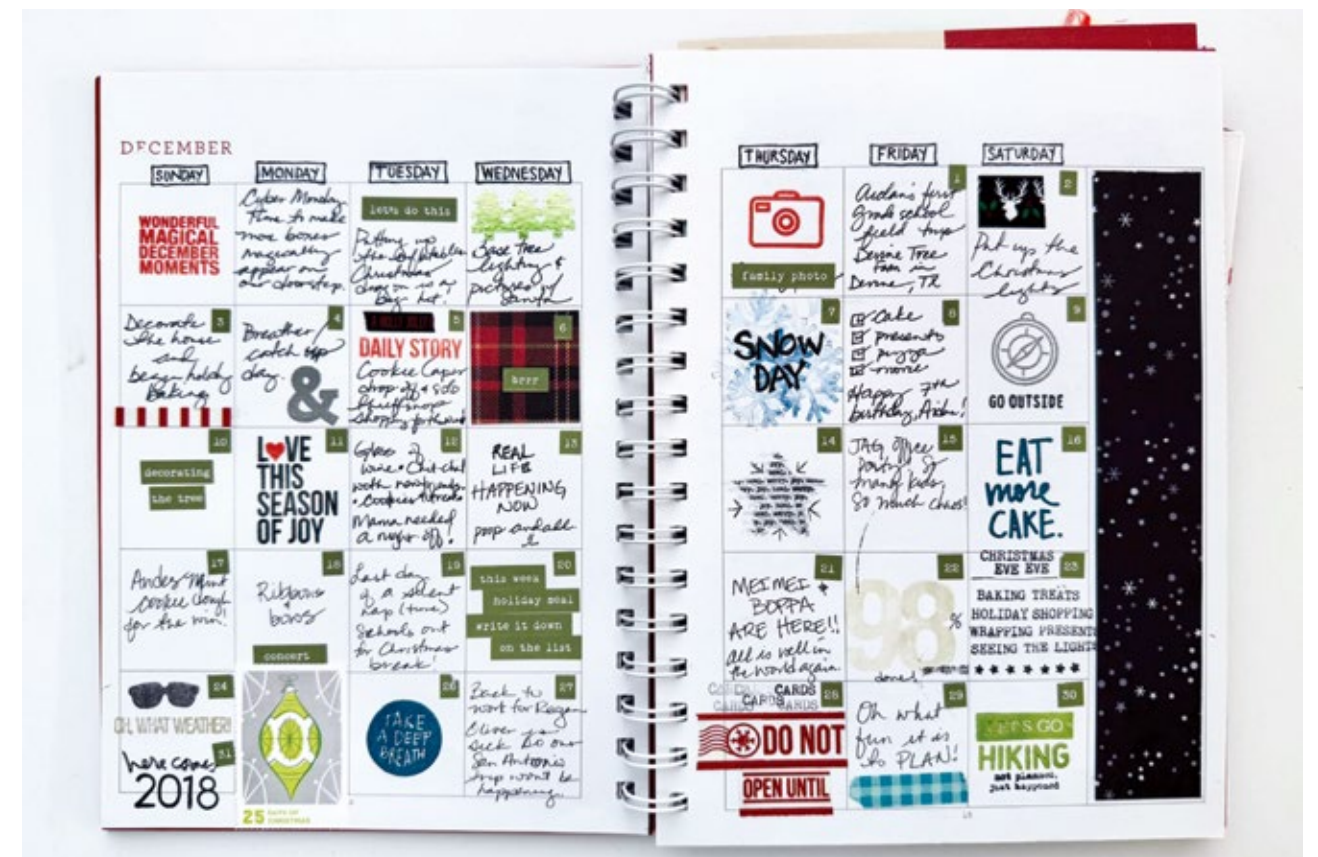 DECEMBER
SUNDAY
MONDAY
TUESDAY
WEDNESDAY
THURSDAY
FRIDAY
SATURDAY
WONDERFUL
MAGICAL
DECEMBER
MOMENTS
Cyber Monday
Time to make
more boxes
magically
appear on
our doorstep.
let's do this
Putting up
the inflatables
Christmas
dragon is a
big hit!
Base Tree
lighting &
pictures w/
Santa
family photo
1
Aidan's first
grade school
field trip
Devine Tree
Farm in
Devine, TX
2
Put up the
Christmas
lights
3
Decorate
the house
and
begin holiday
Baking
4
Breather/
catch up
day.
&
5
DAILY STORY
Cookie Caper
drop off & solo
shopping
6
brrr
7
SNOW
DAY
8
cake
presents
pizza
movie
Happy 7th
birthday, Aidan!
9
GO OUTSIDE
10
decorating
the tree
11
LOVE
THIS
SEASON
OF JOY
12
Glass of
wine + Chit-chat
with
+ cookies
Mama needed
a night off!
13
REAL
LIFE
HAPPENING
NOW
poop and all
14
15
JAG office
party. So
many kids,
So much chaos!
16
EAT
more
CAKE.
17
Andes Mint
cookie dough
for the win!
18
Ribbons
&
bows
concert
19
Last day
of a silent
nap (time)
Schools out
for Christmas
break!
20
this week
holiday meal
write it down
on the list
21
MEIMEI +
BOPPA
ARE HERE!!
All is well in
the world again.
22
98%
done!
23
CHRISTMAS
EVE EVE
BAKING TREATS
HOLIDAY SHOPPING
WRAPPING PRESENTS
SEEING THE LIGHTS
24
OH, WHAT WEATHER!
31
here comes
2018
25 DAYS OF
CHRISTMAS
26
TAKE
A DEEP
BREATH
27
Back to
work for Reagan
Oliver is
sick so our
San Antonio
trip won't be
happening.
28
CARDS CARDS
CARDS CARDS CARDS
DO NOT
OPEN UNTIL
29
Oh what
fun it is
to PLAN!
30
LET'S GO
HIKING
not planned,
just happened